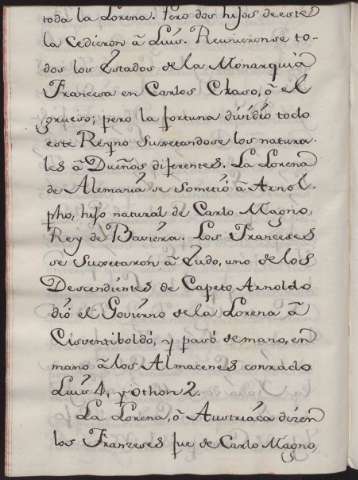 toda la Lorena. Pero dos hijos de este
la cedieron â Luis. Reunieronse to-
dos los Estados de la Monarquia
Francesa en Carlos Craso, ô el
grueso; pero la fortuna dividiò todo
este Reyno suxetandose los natura-
les â Dueños diferentes. La Lorena
de Alemania se sometiò â Arnol-
pho, hijo natural de Carlo Magno,
Rey de Baviera. Los Franceses
se suxetaron â Eudo, uno de los
Descendientes de Capeto Arnoldo
diò el Govierno de la Lorena â
Cisventiboldo, y pasò de mano, en
mano â los Almacenes conrado
Luis 4, y othon 2.
La Lorena, ô Austriaca dizen
los Franzeses fue de Carlo Magno,